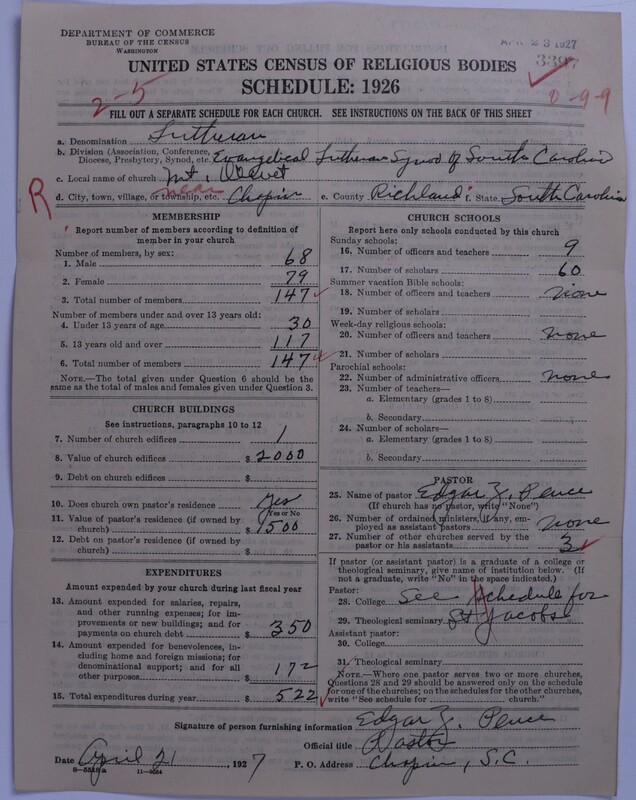 DEPARTMENT OF COMMERCE
BUREAU OF THE CENSUS
WASHINGTON
APR 23 1927
3397
UNITED STATES CENSUS OF RELIGIOUS BODIES
SCHEDULE: 1926
2-5
0-9-9
FILL OUT A SEPARATE SCHEDULE FOR EACH CHURCH. SEE INSTRUCTIONS ON THE BACK OF THIS SHEET
a. Denomination Lutheran
b. Division (Association, Conference, Diocese, Presbytery, Synod, etc. Evangelical Lutheran Synod of South Carolina
c. Local name of church Mt. Olivet
R
d. City, town, village, or township, etc. near Chapin e. County Richland f. State South Carolina
MEMBERSHIP
Report number of members according to definition of
member in your church
Number of members, by sex:
1. Male 68
2. Female 79
3. Total number of members 147
Number of members under and over 13 years old:
4. Under 13 years of age 30
5. 13 years old and over 117
6. Total number of members 147
NOTE.—The total given under Question 6 should be
the same as the total of males and females given under Question 3.
CHURCH BUILDINGS
See instructions, paragraphs 10 to 12
7. Number of church edifices 1
8. Value of church edifices $ 2000
9. Debt on church edifices $
10. Does church own pastor's residence Yes
Yes or No
11. Value of pastor's residence (if owned by
church) $ 1500
12. Debt on pastor's residence (if owned by
church) $
EXPENDITURES
Amount expended by your church during last fiscal year
13. Amount expended for salaries, repairs,
and other running expenses; for im-
provements or new buildings; and for
payments on church debt $ 350
14. Amount expended for benevolences, in-
cluding home and foreign missions; for
denominational support; and for all
other purposes 172
15. Total expenditures during year $ 522
CHURCH SCHOOLS
Report here only schools conducted by this church
Sunday schools:
16. Number of officers and teachers 9
17. Number of scholars 60
Summer vacation Bible schools:
18. Number of officers and teachers none
19. Number of scholars
Week-day religious schools:
20. Number of officers and teachers none
21. Number of scholars
Parochial schools:
22. Number of administrative officers none
23. Number of teachers—
a. Elementary (grades 1 to 8)
b. Secondary
24. Number of scholars—
a. Elementary (grades 1 to 8)
b. Secondary
PASTOR
25. Name of pastor Edgar Z. Pence
(If church has no pastor, write "None")
26. Number of ordained ministers, if any, em-
ployed as assistant pastors none
27. Number of other churches served by the
pastor or his assistants 3
If pastor (or assistant pastor) is a graduate of a college or
theological seminary, give name of institution below. (If
not a graduate, write "No" in the space indicated.)
Pastor:
28. College See Schedule for
29. Theological seminary St Jacobs
Assistant pastor:
30. College
31. Theological seminary
NOTE.—Where one pastor serves two or more churches,
Questions 28 and 29 should be answered only on the schedule
for one of the churches; on the schedules for the other churches,
write "See schedule for church."
Signature of person furnishing information Edgar Z. Pence
Official title Pastor
Date April 21, 1927 P. O. Address Chapin, S.C.
11-9084